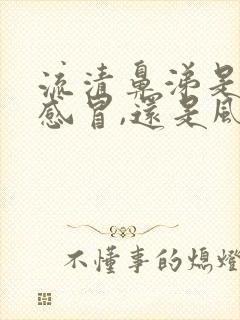 流清鼻涕是
感冒,還是風
不懂事的熄燈